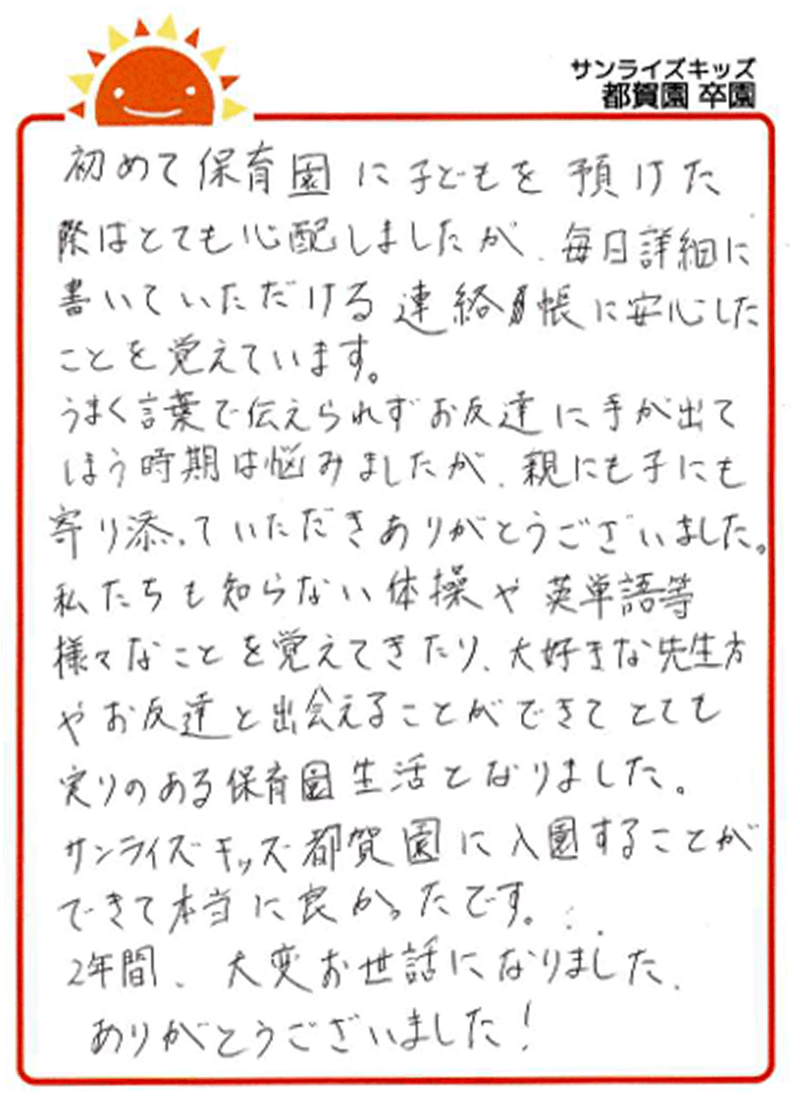 サンライズキッズ
都賀園 卒園
初めて保育園に子どもを預けた
際はとても心配しましたが、毎日詳細に
書いていただける連絡帳に安心した
ことを覚えています。
うまく言葉で伝えられずお友達に手が出て
しまう時期は悩みましたが、親にも子にも
寄り添っていただきありがとうございました。
私たちも知らない体操や英単語等
様々なことを覚えてきたり、大好きな先生方
やお友達と出会えることができてとても
実りのある保育園生活となりました。
サンライズキッズ都賀園に入園することが
できて本当に良かったです。
2年間、大変お世話になりました、
ありがとうございました!